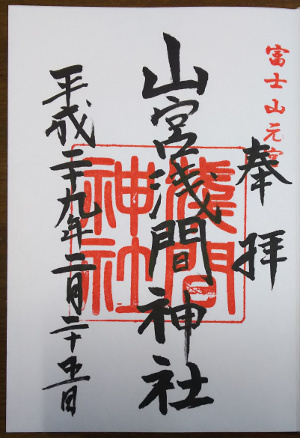 富士山元宮
奉拝
山宮浅間神社
淺間神社
平成二十九年二月二十五日